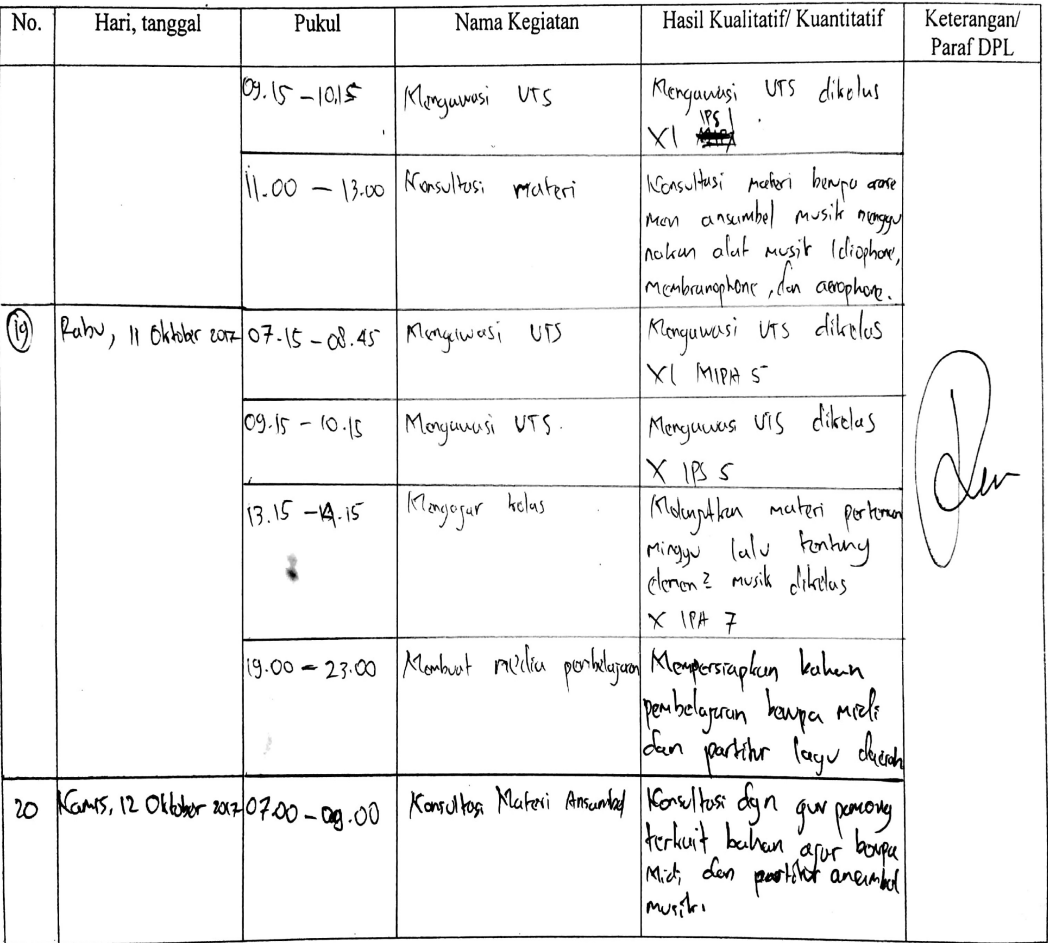 No. Hari, tanggal Pukul Nama Kegiatan Hasil Kualitatif/ Kuantitatif Keterangan/
Paraf DPL
09.15 - 10.15 Mengawasi UTS Mengawasi UTS dikelas
XI IPS 1
11.00 - 13.00 Konsultasi materi Konsultasi materi berupa
men ansambel musik menggu
nakan alat musik Idiophone,
membranophone, dan aerophone.
19 Rabu, 11 Oktober 2017 07.15 - 08.45 Mengawasi UTS Mengawasi UTS dikelas
XI MIPA 5
09.15 - 10.15 Mengawasi UTS. Mengawas UTS dikelas
X IPS 5
13.15 - 14.15 Mengajar kelas Melanjutkan materi pertemuan
minggu lalu tentang
elemen2 musik dikelas
X IPA 7
19.00 - 23.00 Membuat media pembelajaran Mempersiapkan bahan
pembelajaran berupa midi
dan partitur lagu daerah
20 Kamis, 12 Oktober 2017 07.00 - 09.00 Konsultasi Materi Ansambel Konsultasi dgn gur pamong
terkait bahan ajar berupa
Midi, dan partitur ansambel
musik.